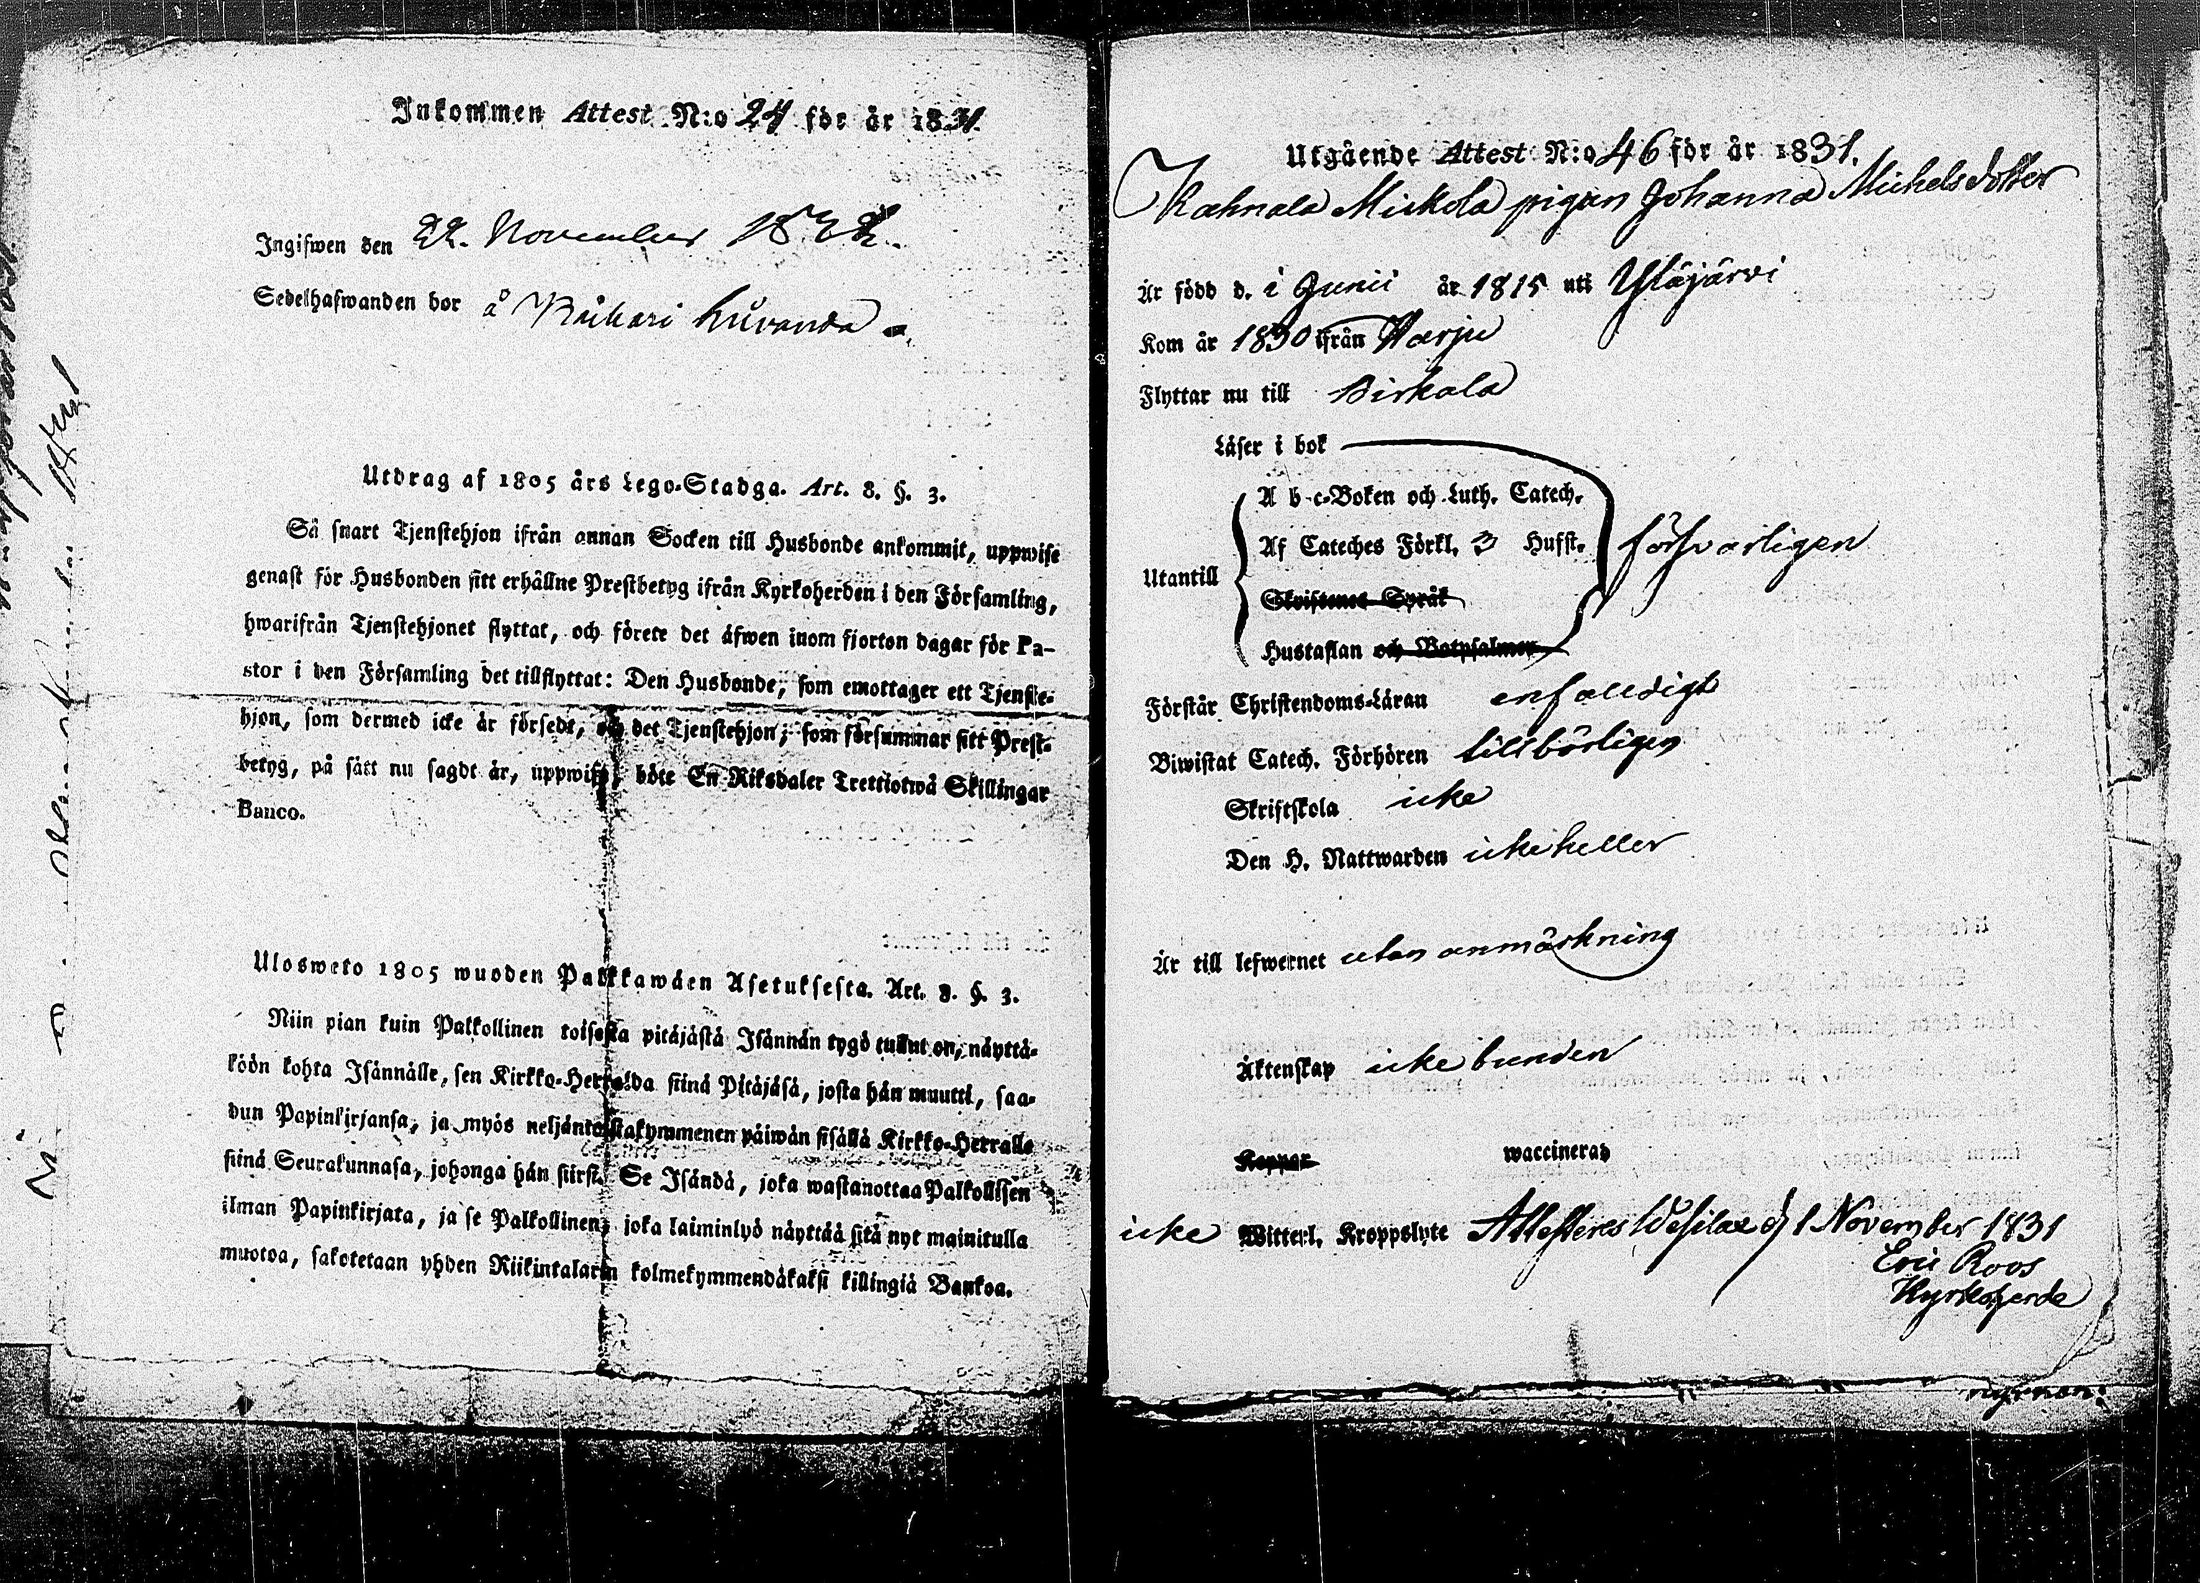 Inkommen Attest N:o 24 för år 1831.
Ingifwen den 22. November 1831.
Sedelhafwanden bor å
Utdrag af 1805 års Lego-Stadga. Art. 8. §. 3.
Så snart Tjenstehjon ifrån annan Socken till Husbonde ankommit, uppwise
genast för Husbonden sitt erhållne Prestbetyg ifrån Kyrkoherden i den Församling,
hwarifrån Tjenstehjonet flyttat, och förete det äfwen inom fjorton dagar för Pa-
stor i den Församling det tillflyttat: Den Husbonde, som emottager ett Tjenste-
hjon, som dermed icke är försedt, och det Tjenstehjon, som försummar sitt Prest-
betyg, på sätt nu sagdt är, uppwisa, böte En Riksdaler Trettiotwå Skillingar
Banco.
Ulosweto 1805 wuoden Palkkawäen Asetuksesta. Art. 8. §. 3.
Niin pian kuin Palkollinen toisesta pitäjästä Isännän tygö tullut on, näyttä-
köön kohta Isännälle, sen Kirkko-Herralda siinä Pitäjäsä, josta hän muutti, saa-
dun Papinkirjansa, ja myös neljäntoistakymmenen päiwän sisällä Kirkko-Herralle
siinä Seurakunnasa, johonga hän siirsi. Se Isändä, joka wastanottaa Palkollisen
ilman Papinkirjata, ja se Palkollinen, joka laiminlyö näyttää sitä nyt mainitulla
muotoa, sakotetaan yhden Riikintalarin kolmekymmendäkaksi killingiä Bankoa.
Utgående Attest N:o 46 för år 1831.
Kahnala Mickola pigan Johanna Michelsdotter
Är född d. i Junii år 1815 uti Ylöjärvi
Kom år 1830 ifrån Harju
Flyttar nu till Birkala
Läser i bok
A b c-Boken och Luth. Catech.
Utantill Af Cateches Förkl. 3 Hufst. försvarligen
Skriftenes Språk
Hustaflan och Botpsalmer
Förstår Christendoms-Läran enfalldigt
Biwistat Catech. Förhören tillbörligen
Skriftskola icke
Den H. Nattwarden icke heller
Är till lefwernet utan anmärkning
Äktenskap icke bunden
Koppor waccinerad
icke Witterl. Kroppslyte Attesteras Wesilax d 1 November 1831
Eric Roos
Kyrkoherde